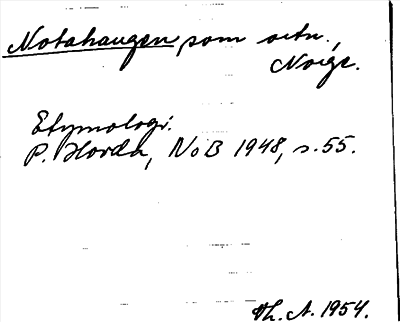 Notahaugen som ortn.,
Norge.
Etymologi.
P. Hovda, NoB 1948, s. 55.
Th. A. 1954.